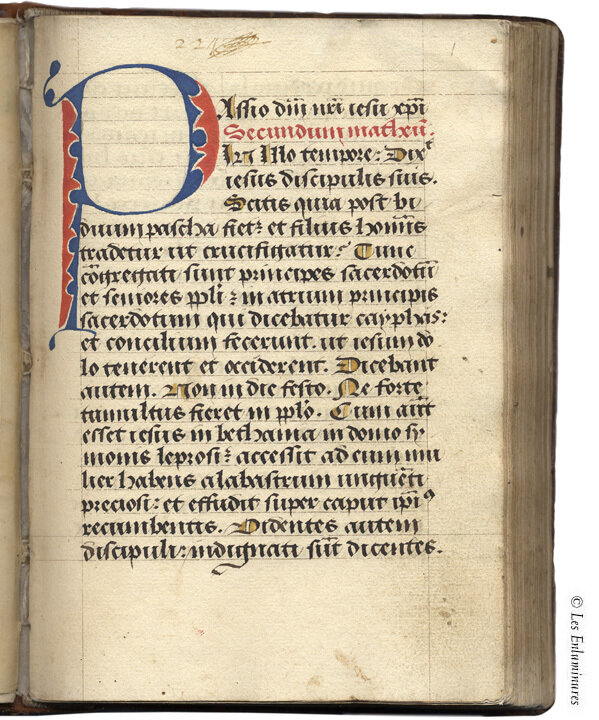 22
1
PAssio dñi nr̄i iesu xp̄i
Secundum matheū.
In Illo tempore: Dixᵗ
iesus discipulis suis.
Scitis quia post bi
duum pascha fiet: et filius hoīnis
tradetur ut crucifigatur: Tunc
cōgregati sunt principes sacerdotū
et seniores ppl̄i: in atrium principis
sacerdotum qui dicebatur cayphas:
et concilium fecerunt. ut iesum do
lo tenerent et occiderent. Dicebant
autem. Non in die festo. Ne forte
tumultus fieret in pplo̅. Cum aūt
esset iesus in bethania in domo sy
monis leprosi: accessit ad eum mu
lier habens alabastrum unguēti
preciosi: et effudit super caput ip̄iꝰ
recumbentis. Videntes autem
discipuli: indignati sūt dicentes.
© Les Enluminures